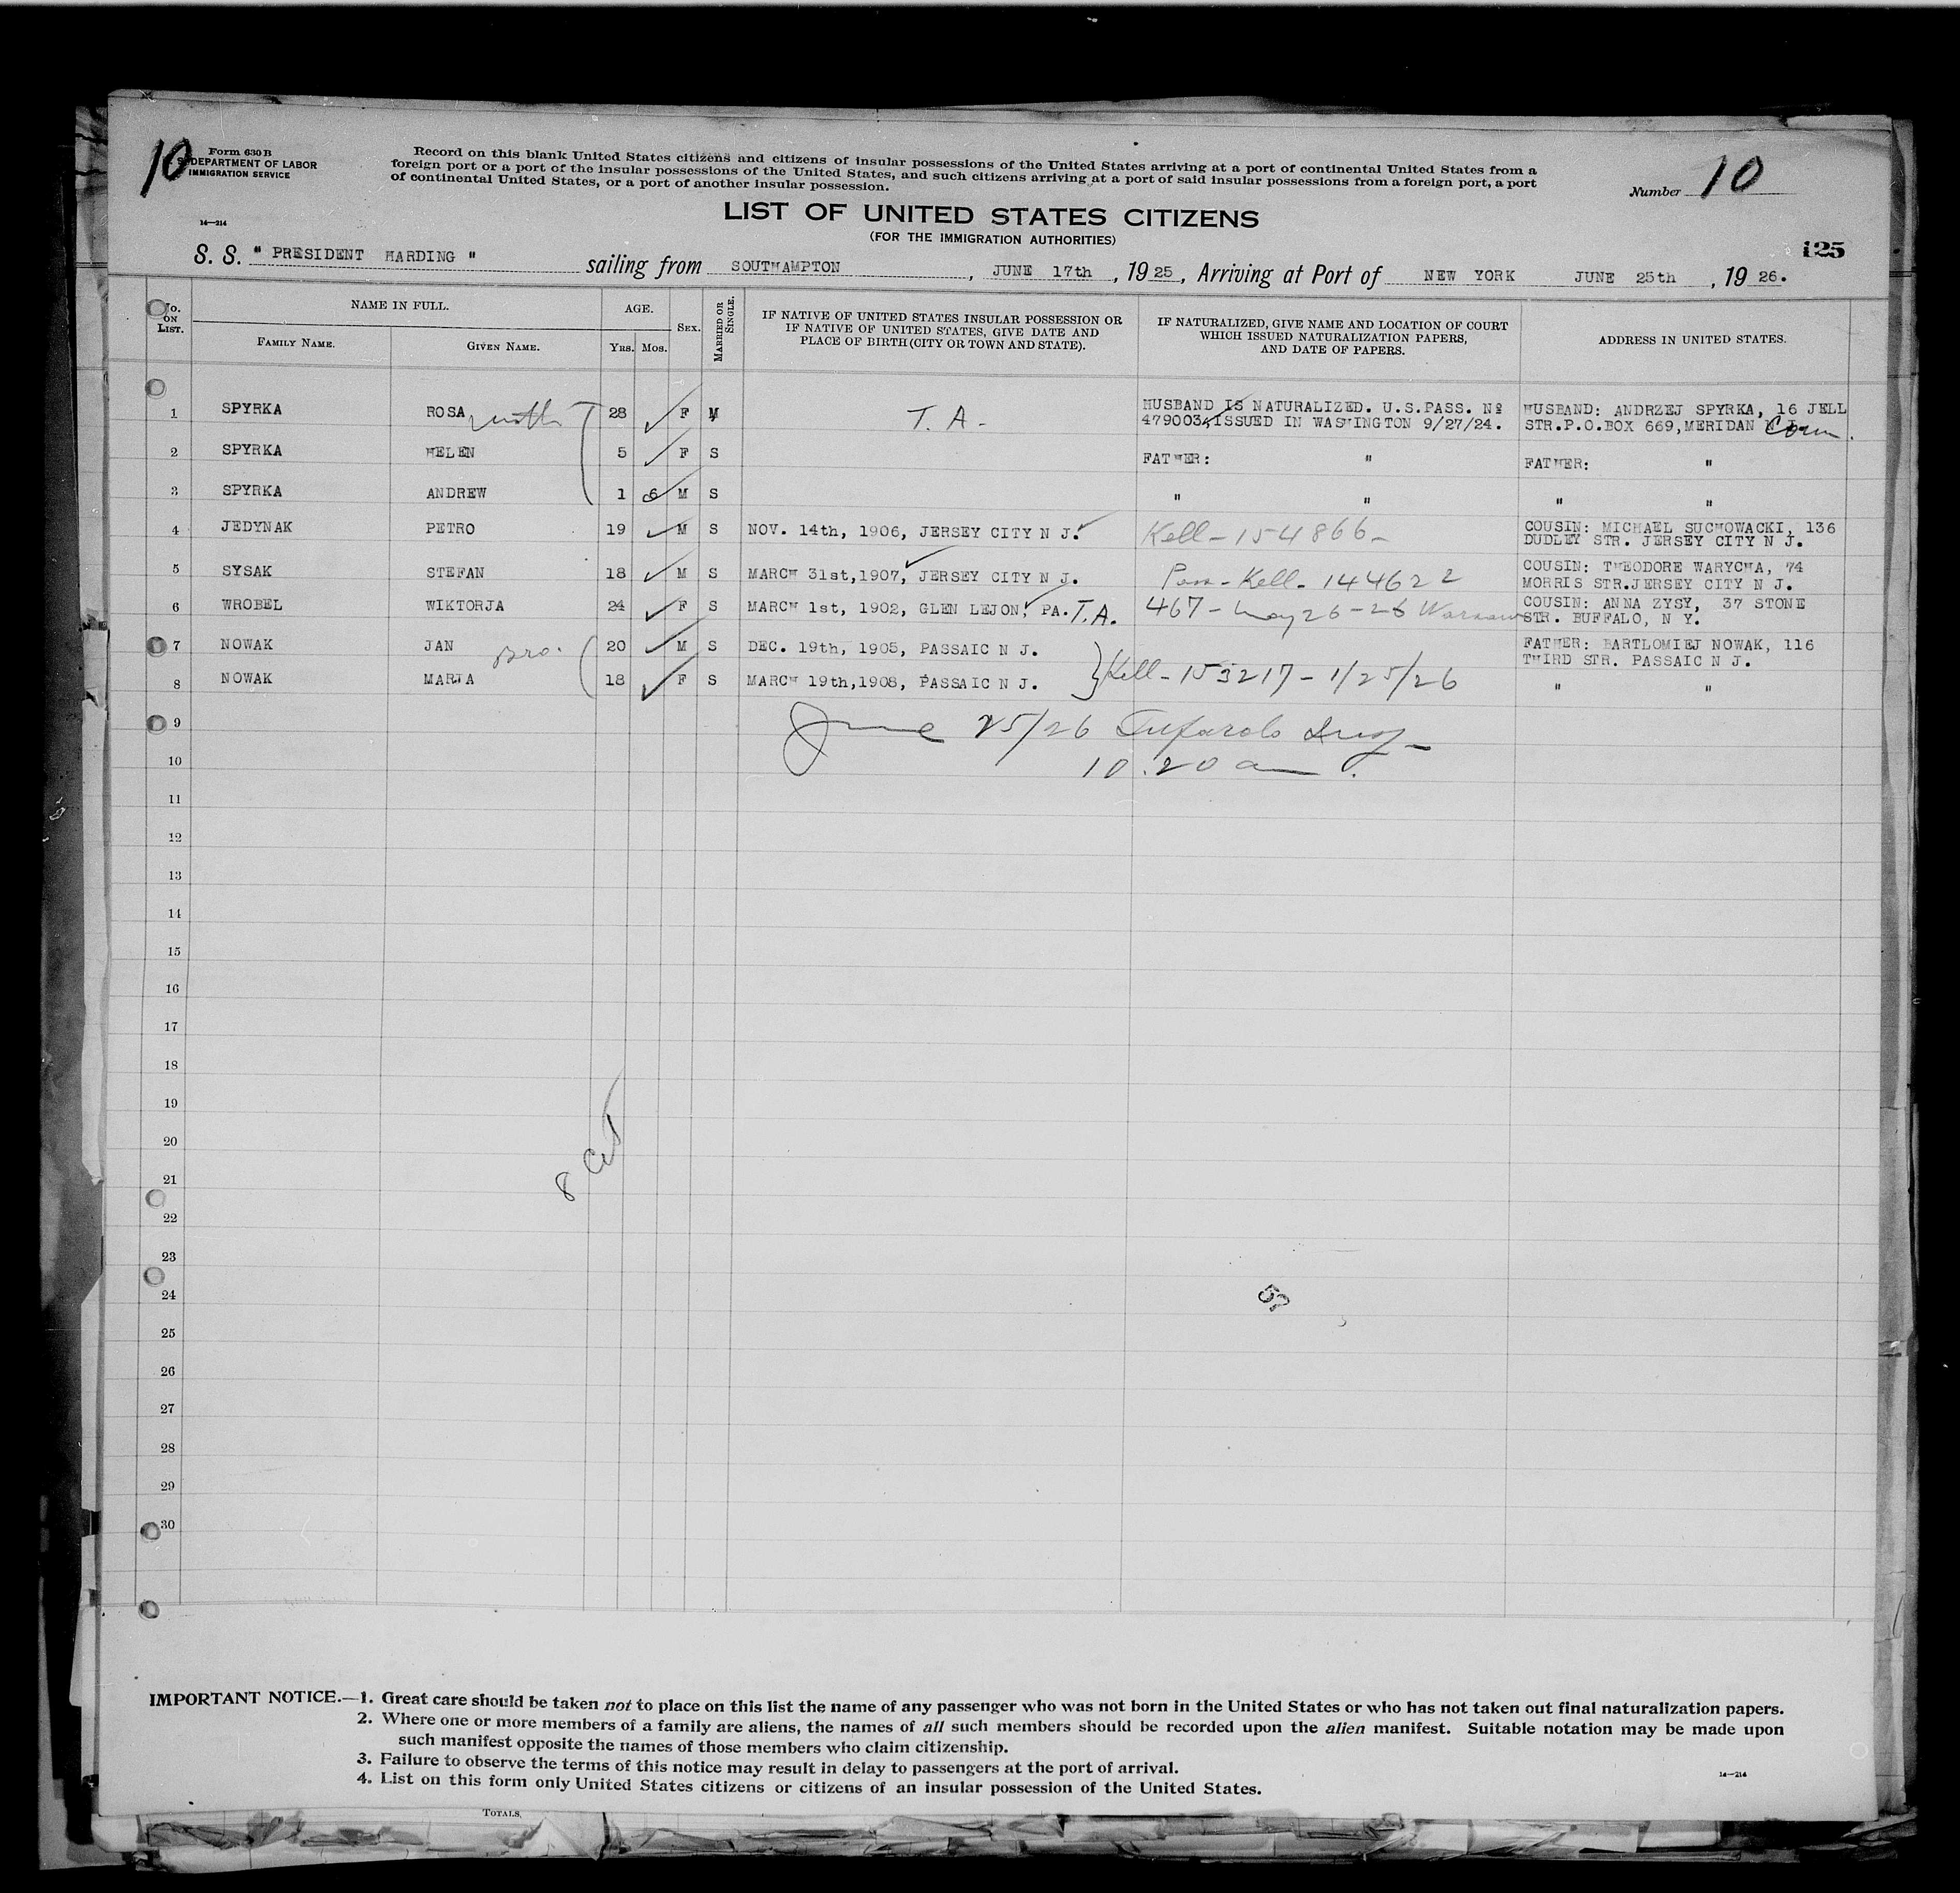 10
Form 630 B
U. S. DEPARTMENT OF LABOR
IMMIGRATION SERVICE
14—214
Record on this blank United States citizens and citizens of insular possessions of the United States arriving at a port of continental United States from a
foreign port or a port of the insular possessions of the United States, and such citizens arriving at a port of said insular possessions from a foreign port, a port
of continental United States, or a port of another insular possession.
Number 10
LIST OF UNITED STATES CITIZENS
(FOR THE IMMIGRATION AUTHORITIES)
125
S. S. " PRESIDENT HARDING " sailing from SOUTHAMPTON, JUNE 17th, 1925, Arriving at Port of NEW YORK JUNE 25th, 1926.
No. ON LIST.
NAME IN FULL.
FAMILY NAME.
GIVEN NAME.
AGE.
YRS. MOS.
SEX.
MARRIED OR SINGLE.
IF NATIVE OF UNITED STATES INSULAR POSSESSION OR
IF NATIVE OF UNITED STATES, GIVE DATE AND
PLACE OF BIRTH (CITY OR TOWN AND STATE).
IF NATURALIZED, GIVE NAME AND LOCATION OF COURT
WHICH ISSUED NATURALIZATION PAPERS,
AND DATE OF PAPERS.
ADDRESS IN UNITED STATES.
1 SPYRKA ROSA 28 F M T. A - HUSBAND IS NATURALIZED. U.S.PASS. Nº HUSBAND: ANDRZEJ SPYRKA, 16 JELL
479003, ISSUED IN WASHINGTON 9/27/24. STR.P.O.BOX 669, MERIDAN Conn.
2 SPYRKA HELEN 5 F S FATHER: " FATHER: "
3 SPYRKA ANDREW 1 6 M S " " " "
4 JEDYNAK PETRO 19 M S NOV. 14th, 1906, JERSEY CITY N J. Kell - 154866 - COUSIN: MICHAEL SUCHOWACKI, 136
DUDLEY STR. JERSEY CITY N J.
5 SYSAK STEFAN 18 M S MARCH 31st,1907, JERSEY CITY N J. Pass - Kell - 144622 COUSIN: THEODORE WARYCHA, 74
MORRIS STR.JERSEY CITY N J.
6 WROBEL WIKTORJA 24 F S MARCH 1st, 1902, GLEN LEJON, PA. T.A. 467 - May 26 - 26 Warsaw COUSIN: ANNA ZYSY, 37 STONE
STR. BUFFALO, N Y.
7 NOWAK JAN 20 M S DEC. 19th, 1905, PASSAIC N J. FATHER: BARTLOMIEJ NOWAK, 116
THIRD STR. PASSAIC N J.
8 NOWAK MARJA 18 F S MARCH 19th,1908, PASSAIC N J. Kell - 153217 - 1/25/26 " "
9 June 25/26
10 10.20 am
11
12
13
14
15
16
17
18
19
20
21
22
23
24
25
26
27
28
29
30
57
IMPORTANT NOTICE.—1. Great care should be taken not to place on this list the name of any passenger who was not born in the United States or who has not taken out final naturalization papers.
2. Where one or more members of a family are aliens, the names of all such members should be recorded upon the alien manifest. Suitable notation may be made upon
such manifest opposite the names of those members who claim citizenship.
3. Failure to observe the terms of this notice may result in delay to passengers at the port of arrival.
4. List on this form only United States citizens or citizens of an insular possession of the United States.
14—214
TOTALS,